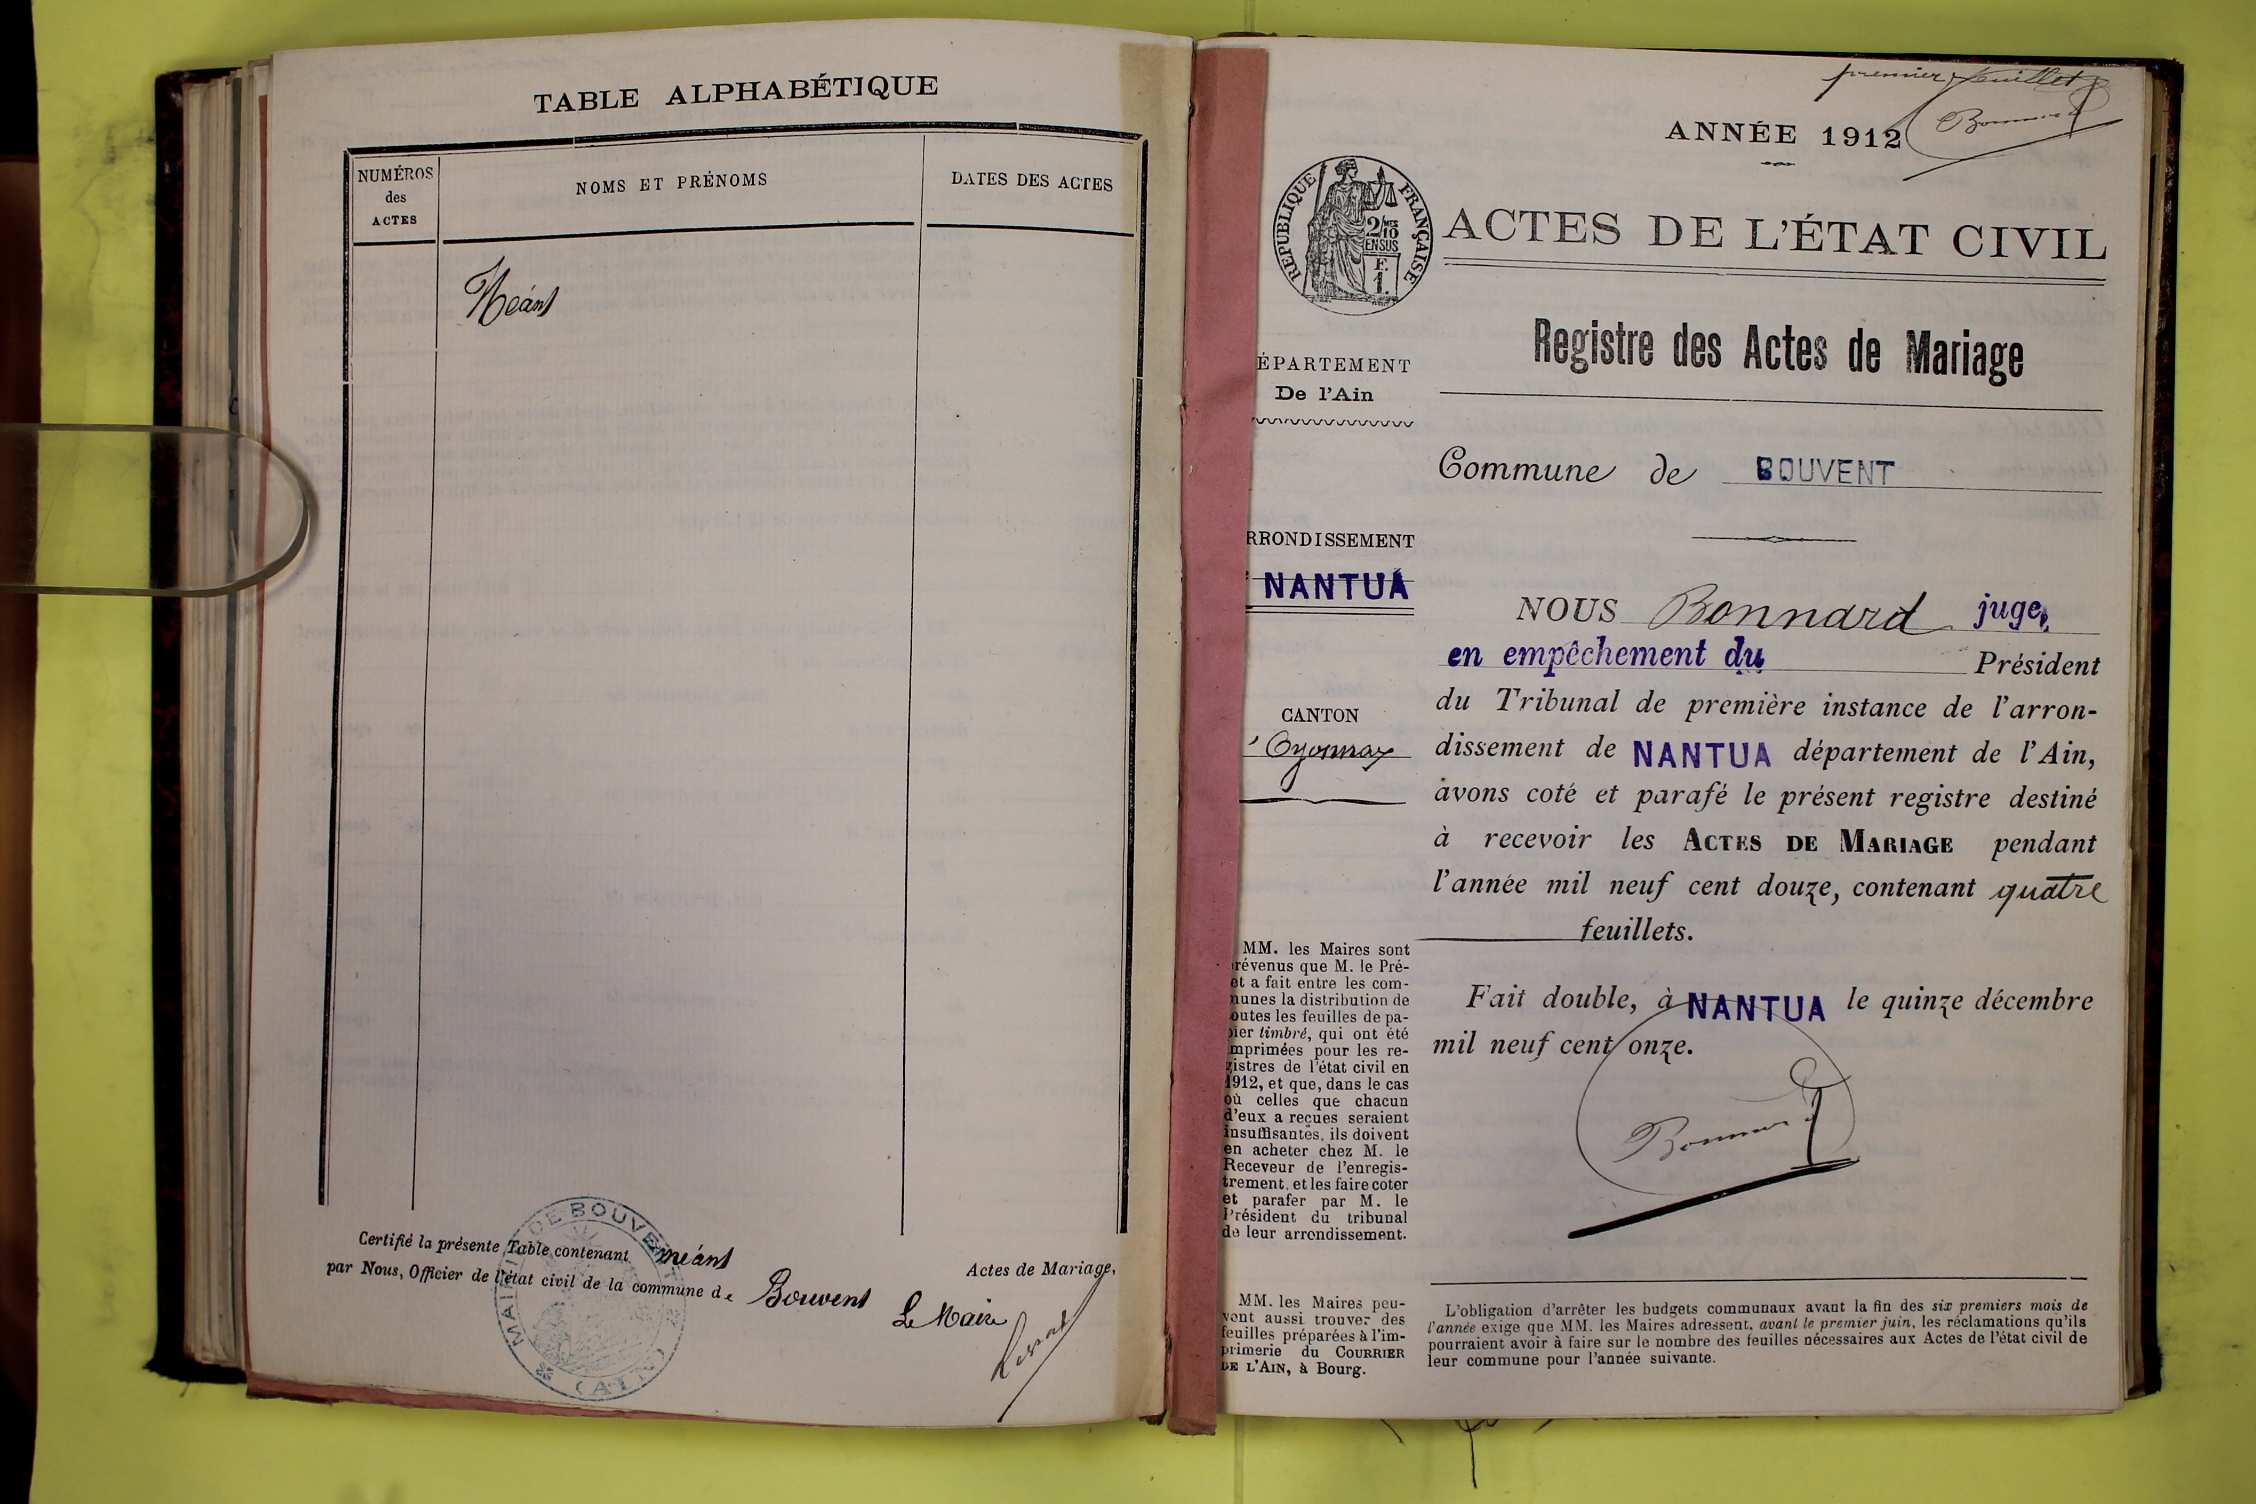 TABLE ALPHABÉTIQUE
NUMÉROS
des
ACTES
NOMS ET PRÉNOMS
DATES DES ACTES
Néant
Certifié la présente Table contenant néant
Actes de Mariage,
par Nous, Officier de l'état civil de la commune de Bouvent
Le Maire
MAIRIE DE BOUVENT
(AIN)
premier feuillet
Bonnard
ANNÉE 1912
RÉPUBLIQUE FRANÇAISE
2/10
EN SUS
F.
1.
ACTES DE L'ÉTAT CIVIL
Registre des Actes de Mariage
ÉPARTEMENT
De l'Ain
Commune de BOUVENT
RRONDISSEMENT
NANTUA
CANTON
' Oyonnax
NOUS Bonnard juge,
en empêchement du Président
du Tribunal de première instance de l'arron-
dissement de NANTUA département de l'Ain,
avons coté et parafé le présent registre destiné
à recevoir les ACTES DE MARIAGE pendant
l'année mil neuf cent douze, contenant quatre
feuillets.
Fait double, à NANTUA le quinze décembre
mil neuf cent onze.
Bonnard
MM. les Maires sont
révenus que M. le Pré-
et a fait entre les com-
munes la distribution de
outes les feuilles de pa-
pier timbré, qui ont été
imprimées pour les re-
gistres de l'état civil en
1912, et que, dans le cas
où celles que chacun
d'eux a reçues seraient
insuffisantes, ils doivent
en acheter chez M. le
Receveur de l'enregis-
trement, et les faire coter
et parafer par M. le
Président du tribunal
de leur arrondissement.
MM. les Maires peu-
vent aussi trouver des
feuilles préparées à l'im-
primerie du COURRIER
DE L'AIN, à Bourg.
L'obligation d'arrêter les budgets communaux avant la fin des six premiers mois de
l'année exige que MM. les Maires adressent, avant le premier juin, les réclamations qu'ils
pourraient avoir à faire sur le nombre des feuilles nécessaires aux Actes de l'état civil de
leur commune pour l'année suivante.